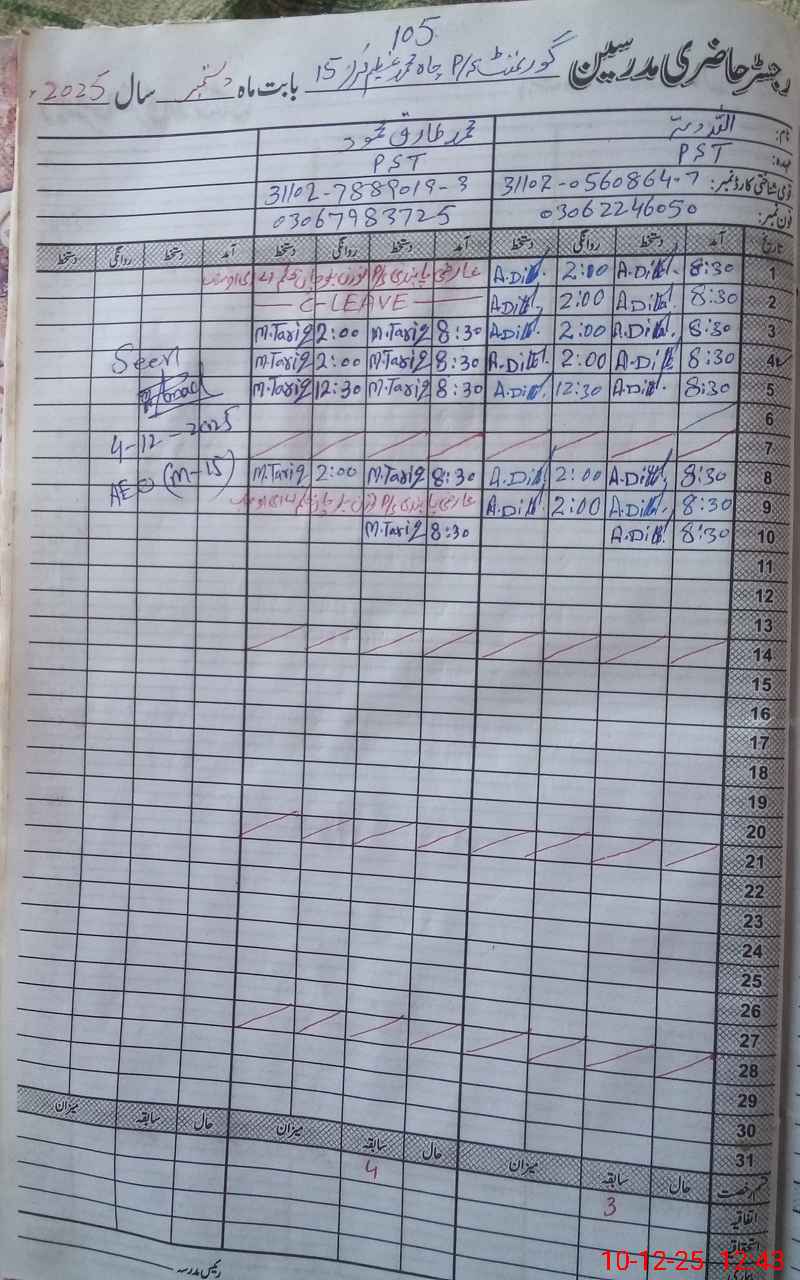 105
رجسٹر حاضری مدرسین گورنمنٹ P/S چاہ محمد عظیم نمبر 15 بابت ماہ دسمبر سال 2025ء
نام: اللہ دتہ محمد طارق محمود
عہدہ: PST PST
قومی شناختی کارڈ نمبر: 31102-0560864-7 31102-7889019-3
فون نمبر: 03062246050 03067983725
تاریخ آمد دستخط روانگی دستخط آمد دستخط روانگی دستخط آمد دستخط روانگی دستخط
1 8:30 A.Ditta. 2:00 A.Ditta. عارضی ڈیوٹی P/S
2 8:30 A.Ditta. 2:00 A.Ditta. C-LEAVE
3 8:30 A.Ditta. 2:00 A.Ditta. 8:30 M.Tariq 2:00 M.Tariq
4 8:30 A.Ditta. 2:00 A.Ditta. 8:30 M.Tariq 2:00 M.Tariq Seen
5 8:30 A.Ditta. 12:30 A.Ditta. 8:30 M.Tariq 12:30 M.Tariq
6 4-12-2025
7
8 8:30 A.Ditta. 2:00 A.Ditta. 8:30 M.Tariq 2:00 M.Tariq AEO (M-15)
9 8:30 A.Ditta. 2:00 A.Ditta. عارضی ڈیوٹی P/S
10 8:30 A.Ditta. 8:30 M.Tariq
11
12
13
14
15
16
17
18
19
20
21
22
23
24
25
26
27
28
29
30
31
قسم رخصت حال سابقہ میزان حال سابقہ میزان حال سابقہ میزان
اتفاقیہ 3 4
استحقاقی
رئیس مدرسہ
10-12-25 12:43